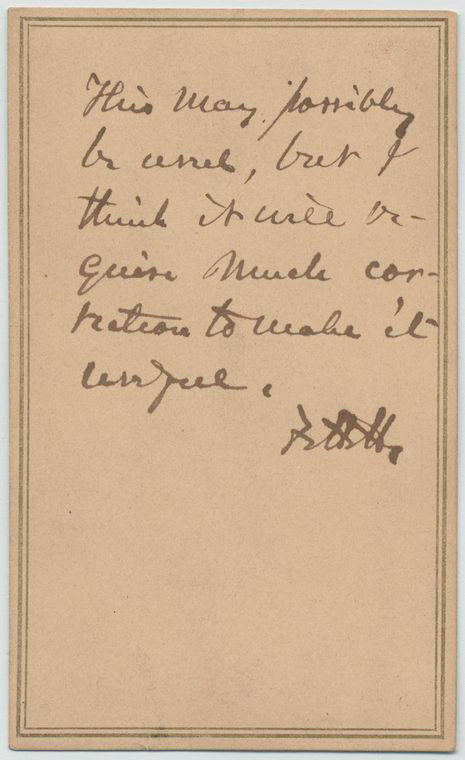 This may possibly
be used, but I
think it will re-
quire much cor-
rection to make it
useful.